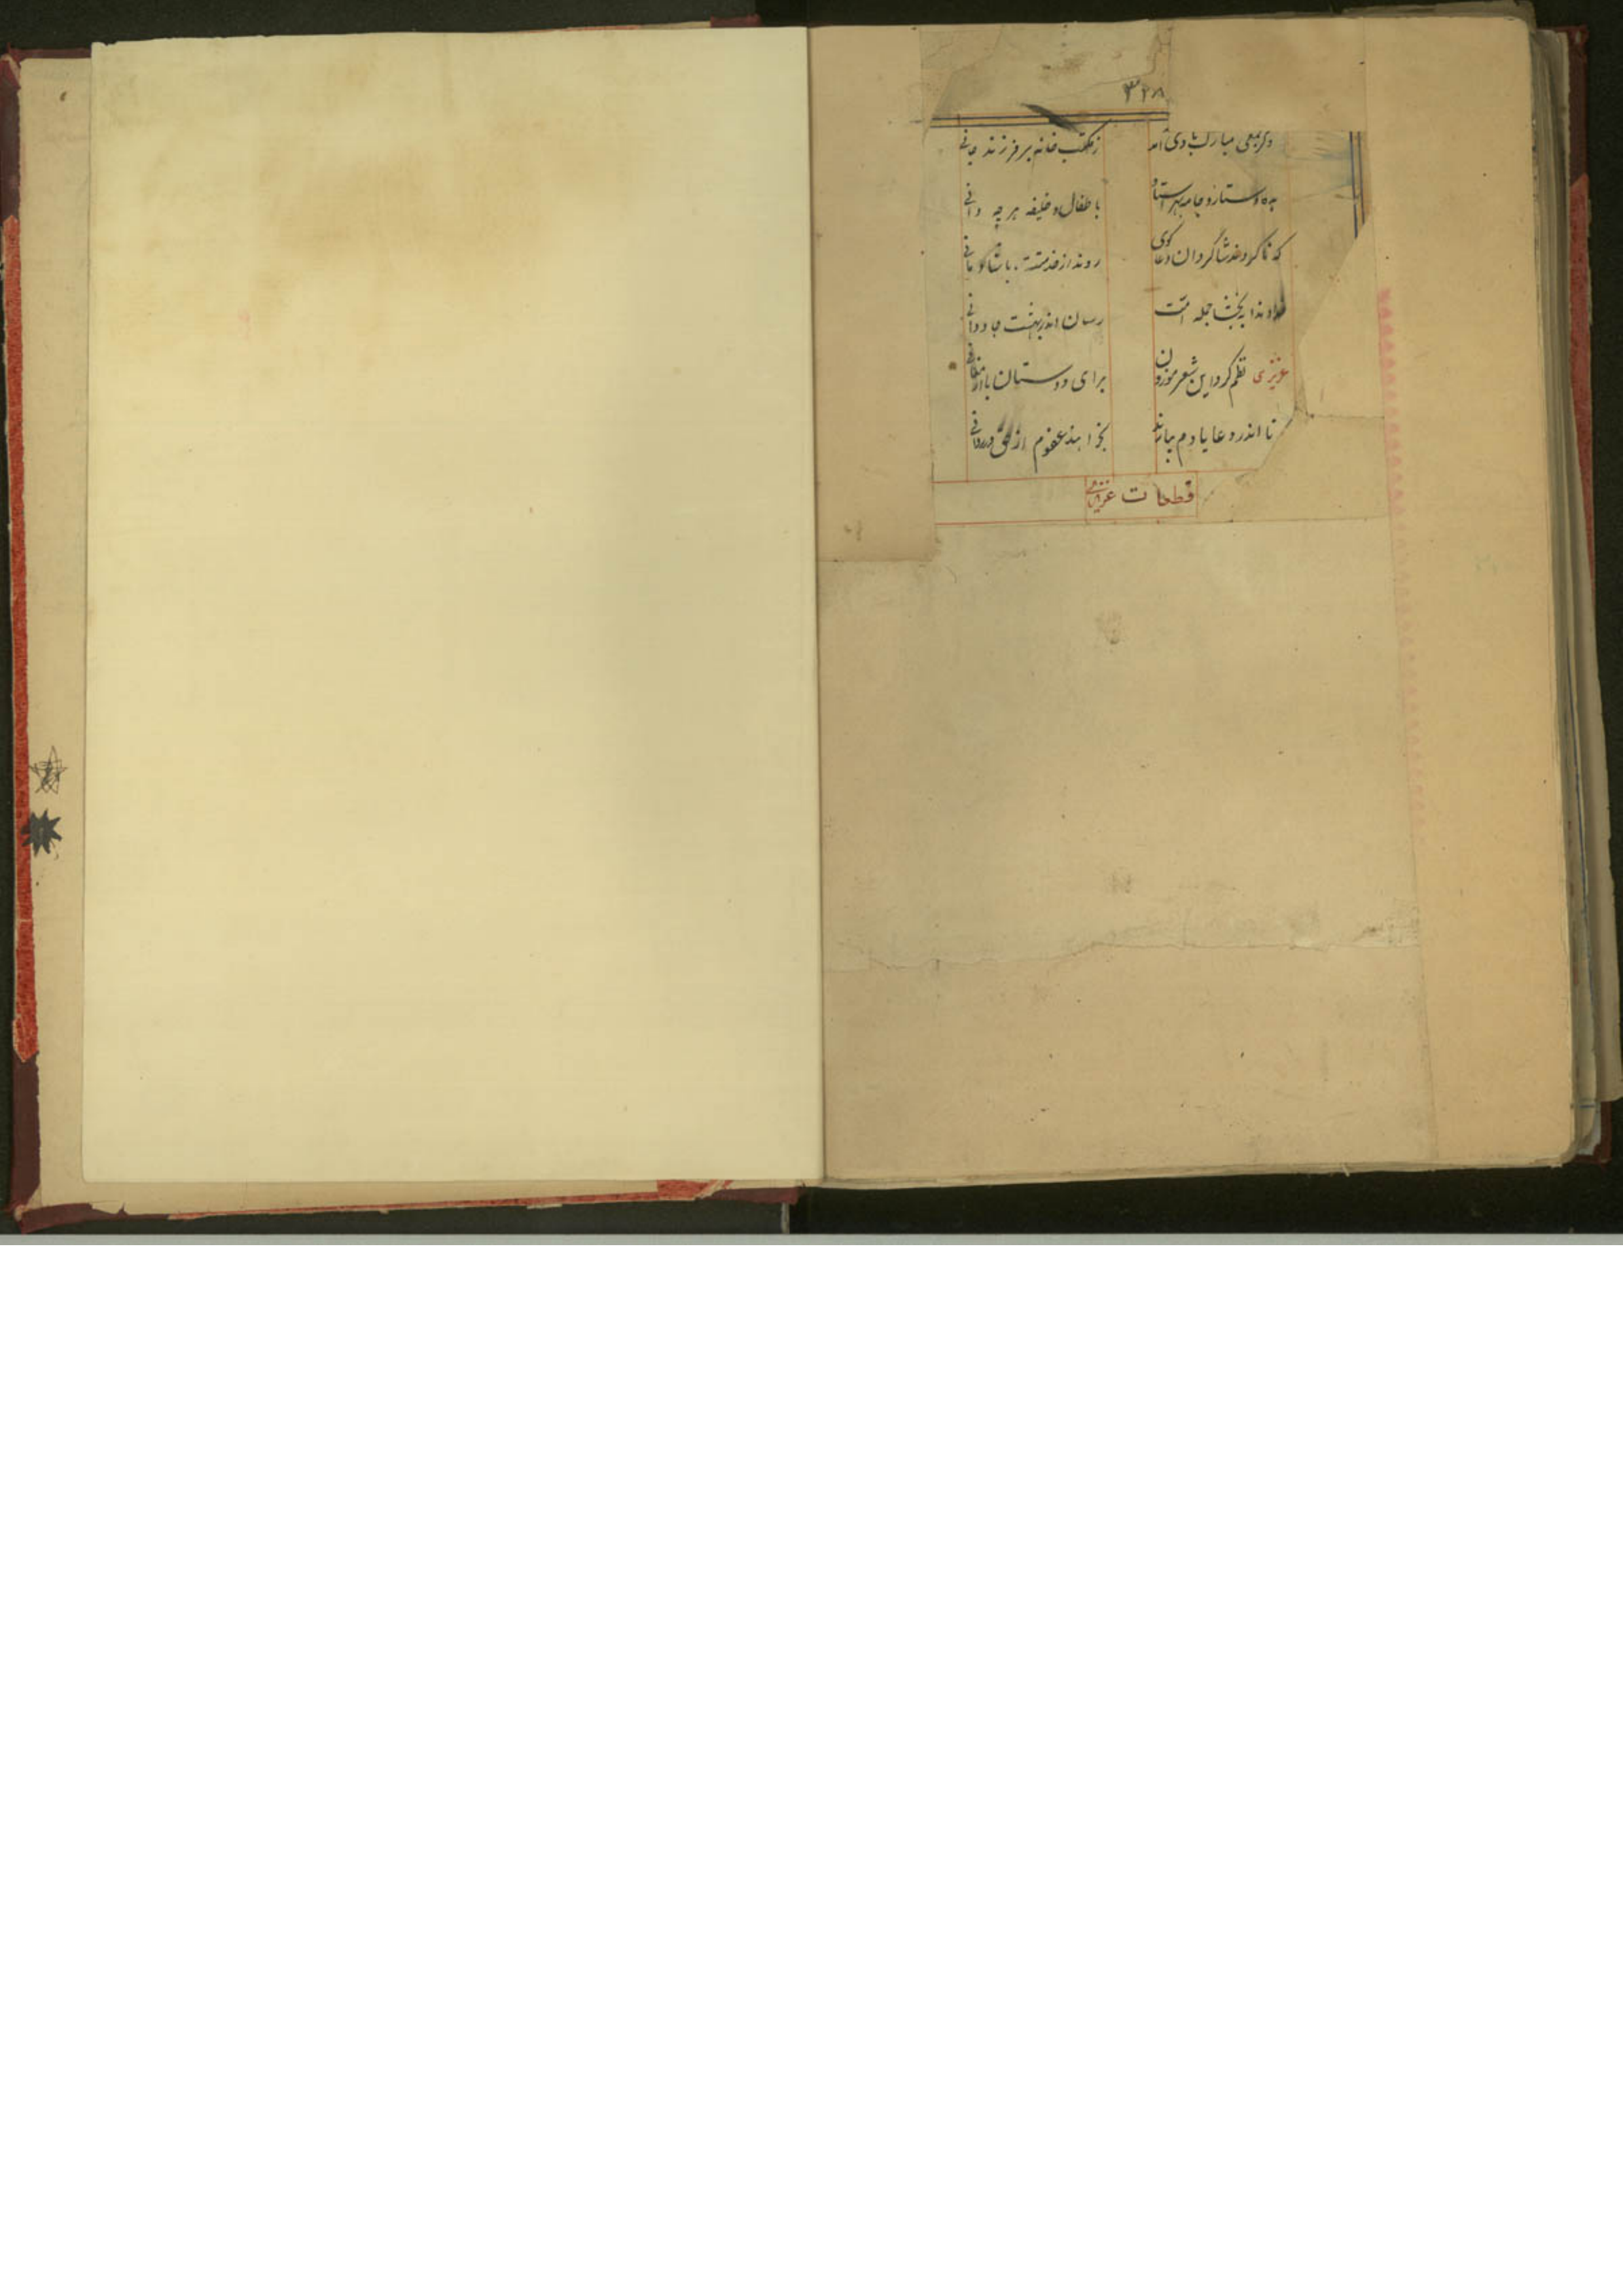 ۳۲۸
مبارکبادی آمد ز مکتب خانه بر فرزند جانی
بده دستار و جامه بهر استاد باطفال و خلیفه هر چه دانی
که تا گردند شاگردان دعا گوی روند از خدمتت با شادمانی
خداوندا به بخشا جمله امت رسان اندر بهشت جاودانی
عزیزی نظم کرد این شعر موزون برای دوستان با ارمغانی
تا اندر دعا یادم بیارند بخواهند عفوم از حق
قطعات عزیزی